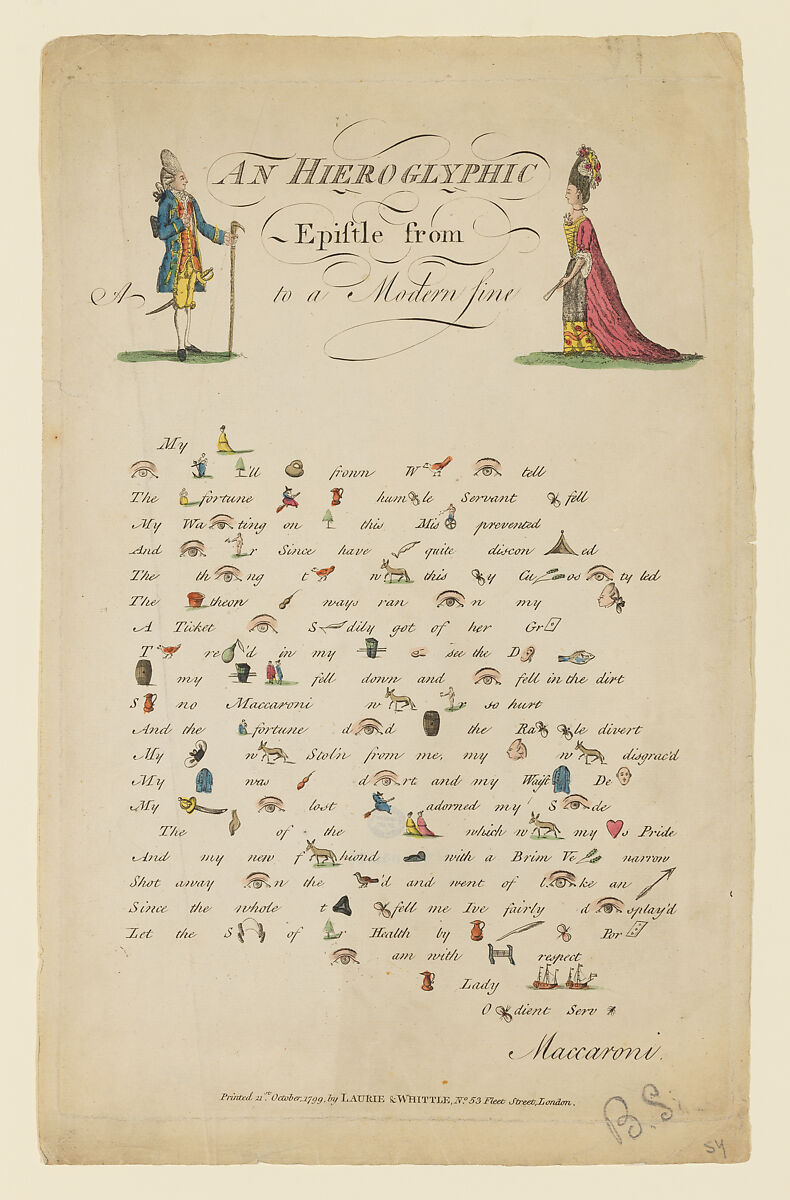 AN HIEROGLYPHIC
Epiſtle from
A to a Modern fine
My
'll frown W tell
The fortune hum le Servant fell
My Wa ting on this Mis prevented
And r Since have quite discon ed
The th ng t w this y Cu os ty led
The theon ways ran n my
A Ticket S dily got of her Gr
T re 'd in my see the D
my fell down and fell in the dirt
S no Maccaroni w r so hurt
And the fortune d d the Ra le divert
My w Stol'n from me, my w disgrac'd
My was d rt and my Waiſt De
My lost adorned my S de
The of the which w my s Pride
And my new f hiond with a Brim Ve narrow
Shot away n the 'd and went of l ke an
Since the whole t fell me Ive fairly d splay'd
Let the S of r Health by Por
am with respect
Lady
O dient Serv
Maccaroni.
Printed 21st October, 1799, by LAURIE & WHITTLE, No 53 Fleet Street, London.
B.S.
SY